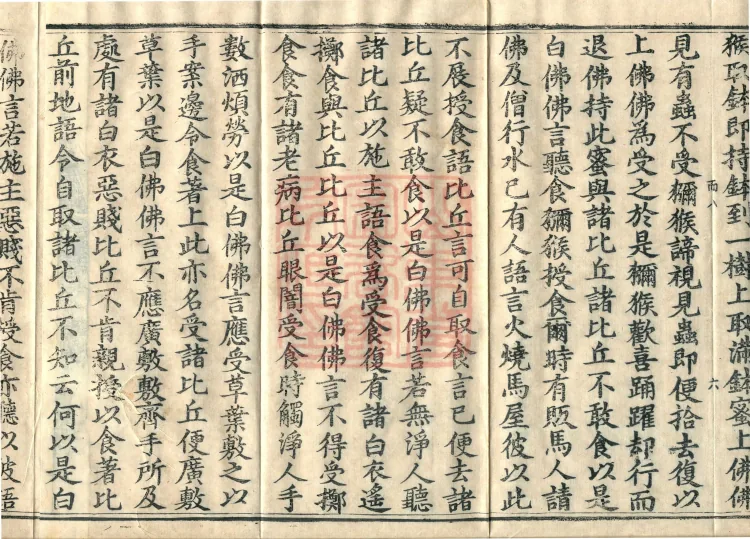 猴取鉢即持鉢到一樹上取滿鉢蜜上佛佛
雨八
六
見有蟲不受獼猴諦視見蟲即便拾去復以
上佛佛爲受之於是獼猴歡喜踊躍却行而
退佛持此蜜與諸比丘諸比丘不敢食以是
白佛佛言聽食獼猴授食爾時有販馬人請
佛及僧行水已有人語言火燒馬屋彼以此
不展授食語比丘言可自取食言已便去諸
比丘疑不敢食以是白佛佛言若無淨人聽
諸比丘以施主語食爲受食復有諸白衣遙
擲食與比丘比丘以是白佛佛言不得受擲
食食有諸老病比丘眼闇受食時觸淨人手
數洒煩勞以是白佛佛言應受草葉敷之以
手案邊令食著上此亦名受諸比丘便廣敷
草葉以是白佛佛言不應廣敷敷齊手所及
處有諸白衣惡賤比丘不肯親授以食著比
丘前地語令自取諸比丘不知云何以是白
佛佛言若施主惡賤不肯受食亦聽以彼語